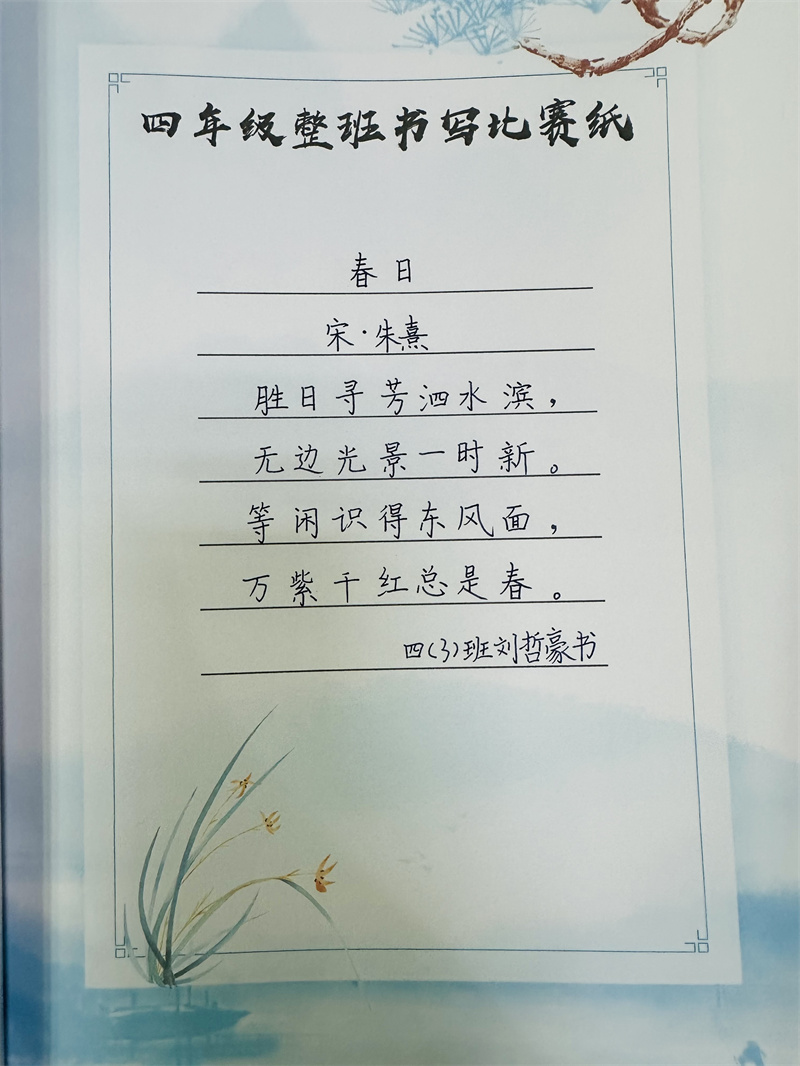 四年级整班书写比赛纸
春日
宋·朱熹
胜日寻芳泗水滨，
无边光景一时新。
等闲识得东风面，
万紫千红总是春。
四(3)班刘哲豪书